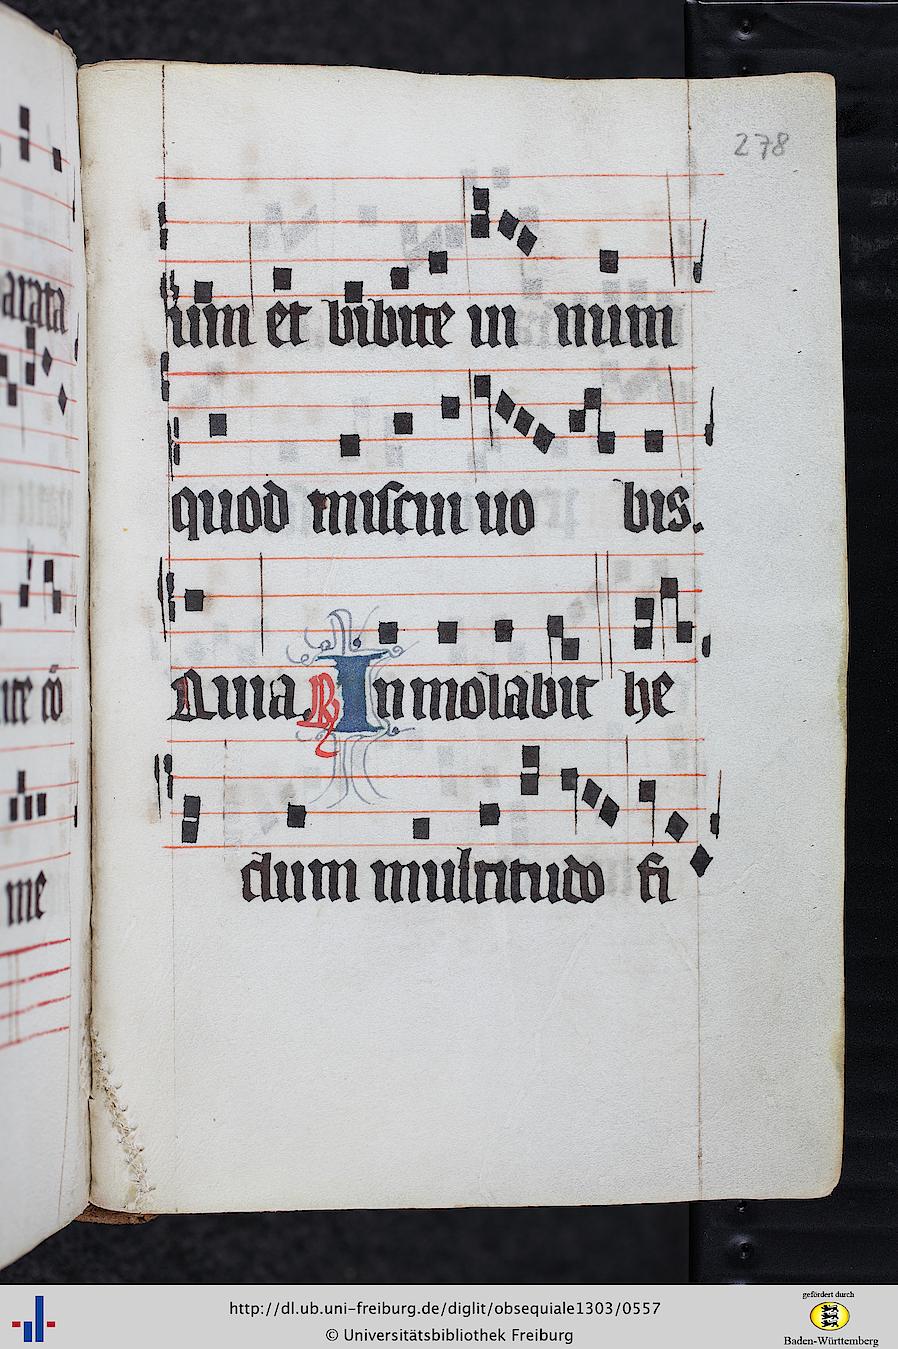 278
arata
um et bibite in num
quod miscui uo bis.
ite cō
Auia ℟ Inmolabit he
me
dum multitudo fi
http://dl.ub.uni-freiburg.de/diglit/obsequiale1303/0557
© Universitätsbibliothek Freiburg
gefördert durch
Baden-Württemberg